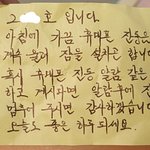 2 호 입니다.
아침에 가끔 휴대폰 진동은
계속 울려 잠을 설치곤 합니다
혹시 휴대폰 진동 알람 같은
하고 계시다면 알람후에 진
멈추어 주시면 감사하겠습니다
오늘도 좋은 하루 되세요.